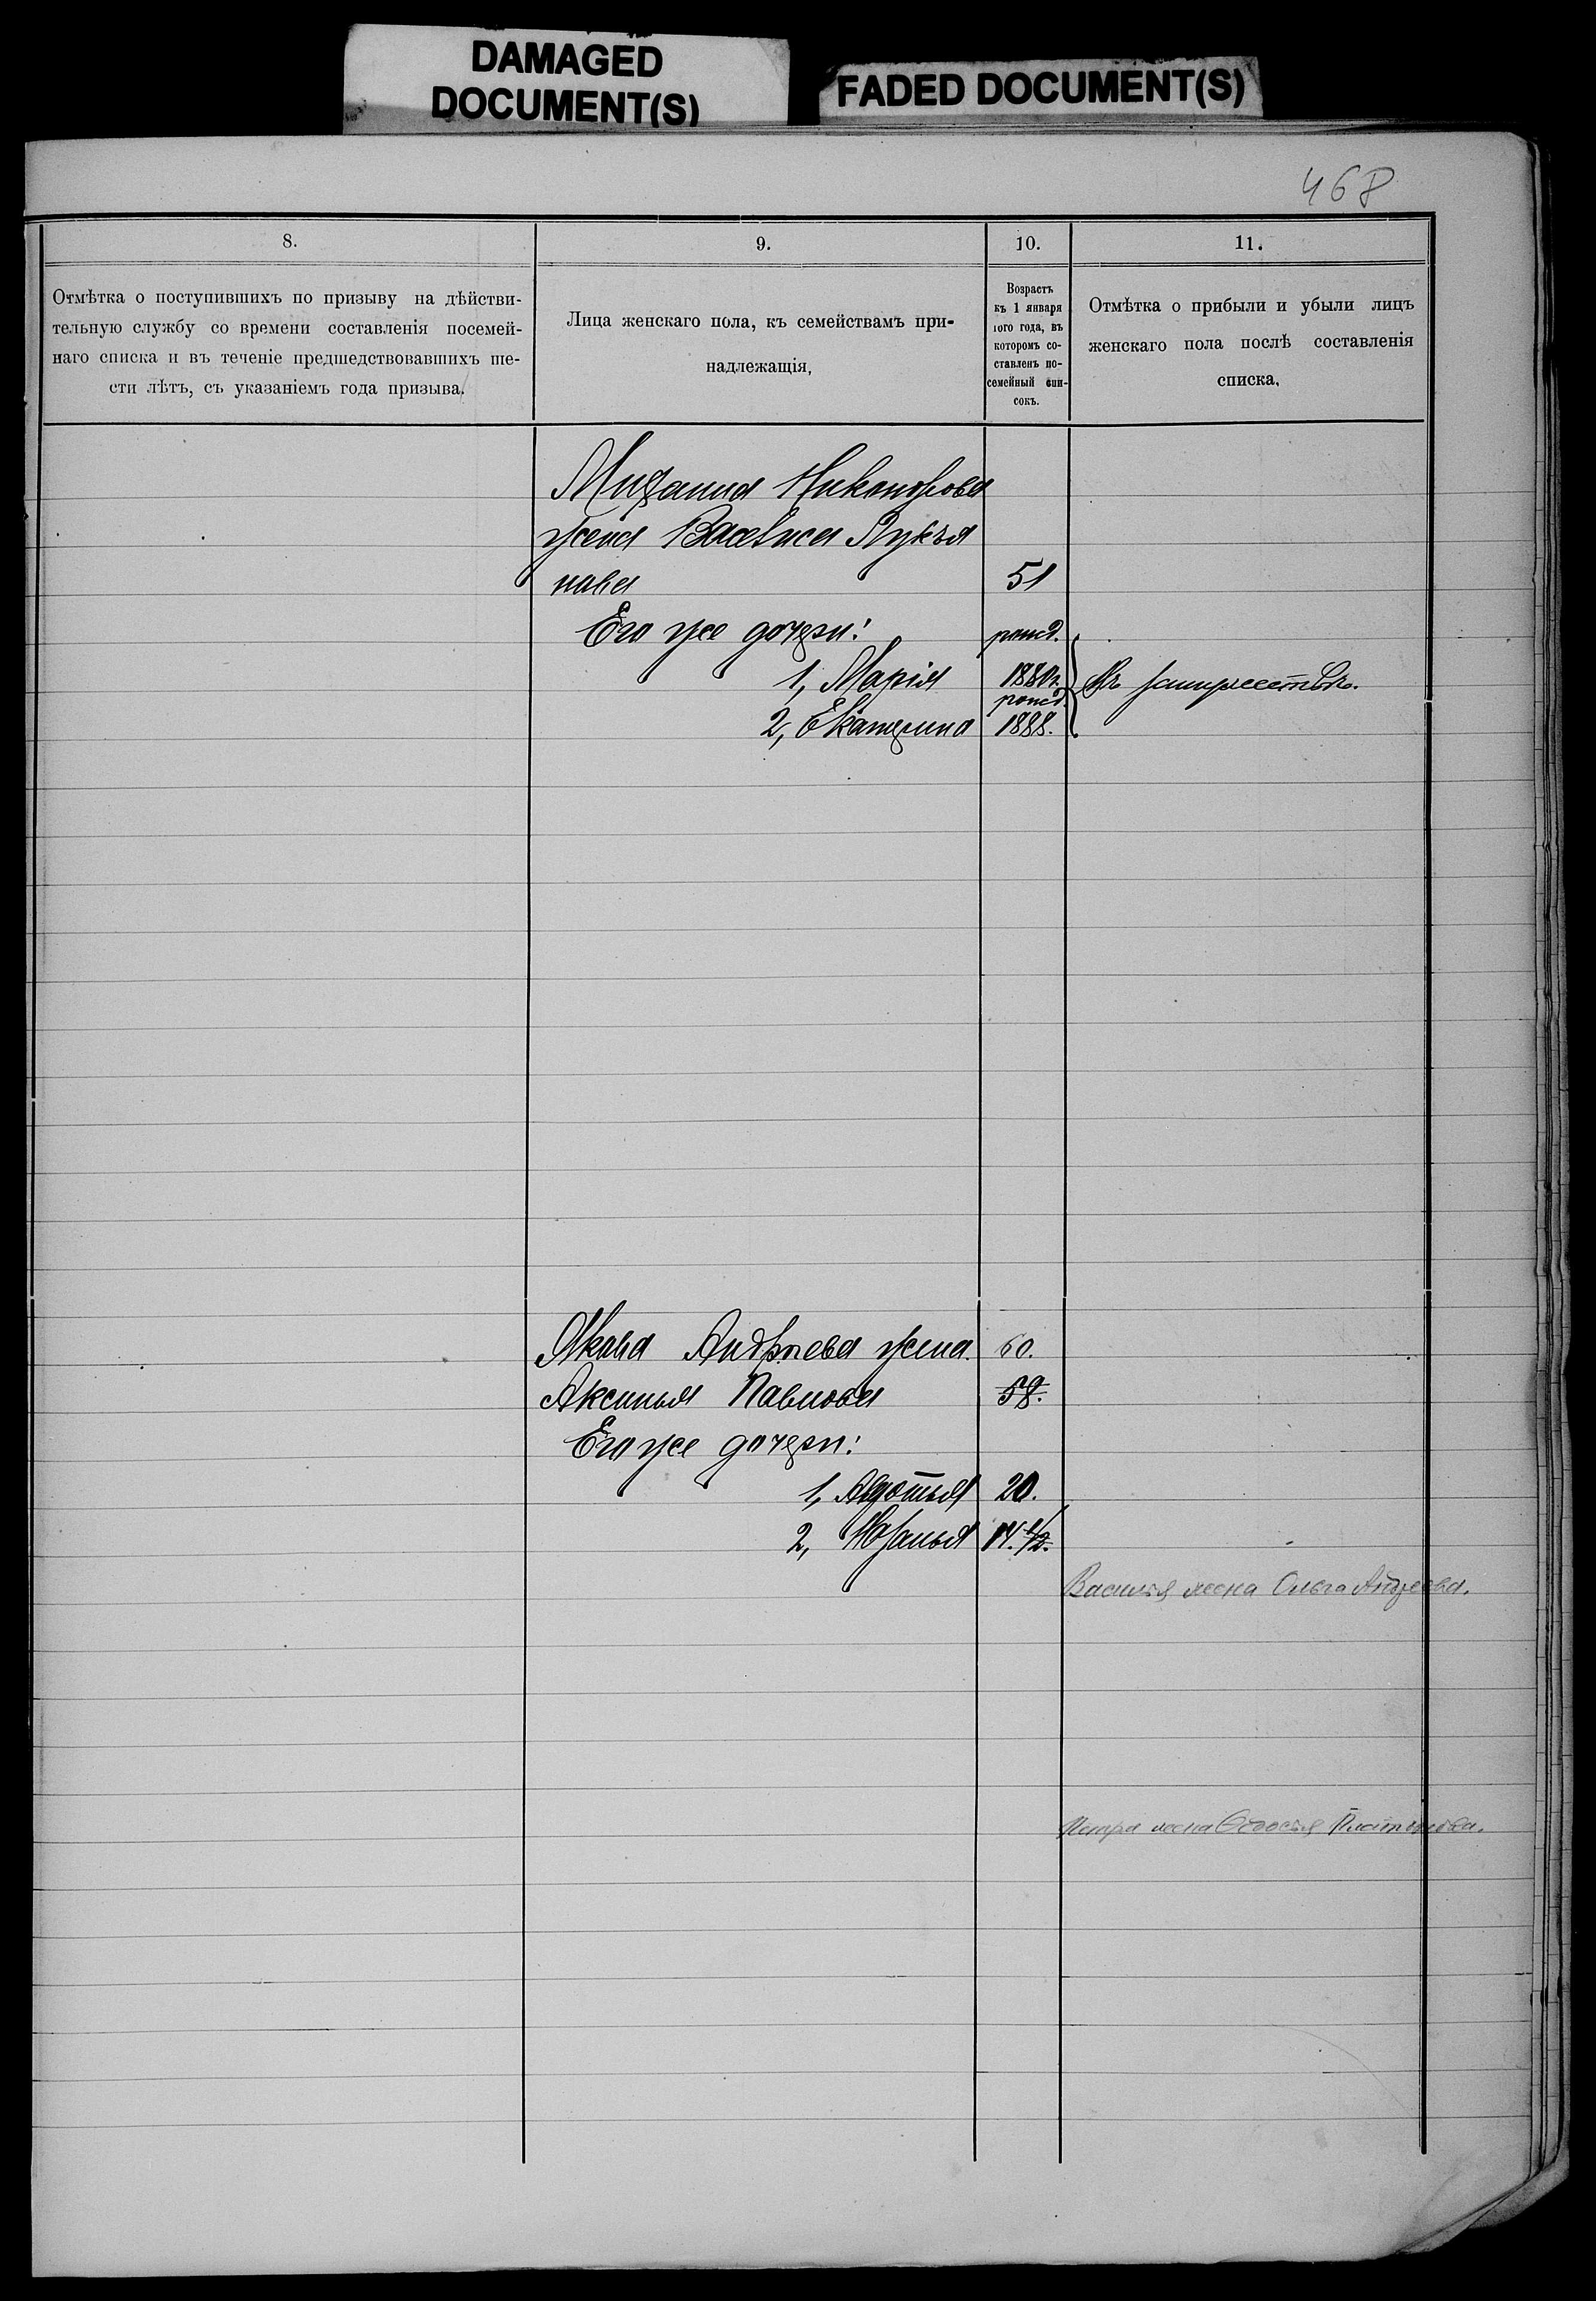 DAMAGED
DOCUMENT(S)
FADED DOCUMENT(S)
468
8.
Отмѣтка о поступившихъ по призыву на дѣйстви-
тельную службу со времени составленія посемей-
наго списка и въ теченіе предшедствовавшихъ ше-
сти лѣтъ, съ указаніемъ года призыва.
9.
Лица женскаго пола, къ семействамъ при-
надлежащія,
10.
Возрастъ
къ 1 января
того года, въ
которомъ со-
ставленъ по-
семейный спи-
сокъ.
11.
Отмѣтка о прибыли и убыли лицъ
женскаго пола послѣ составленія
списка.
Никонорова
жена Васѣлиса Лукья
нова 51
Его же дочери: рожд.
1, Марія 1880г.
рожд.
Въ замужествѣ.
2, Екатерина 1888.
Якова Андрѣева жена 60.
Аксинья Павлова 58.
Его же дочери:
1, Авдотья 20.
2, 14. 1/2.
Василія жена Ольга Андреева.
Петра жена Ѳедосія Платонова.